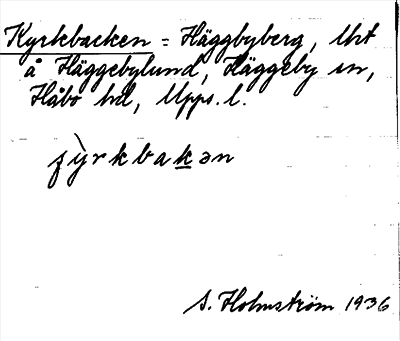 Kyrkbacken = Häggbyberg, Uht
å Häggebylund, Häggeby sn,
Håbo hd, Upps. l.
ʂy̆rkbakən
S. Holmström 1936